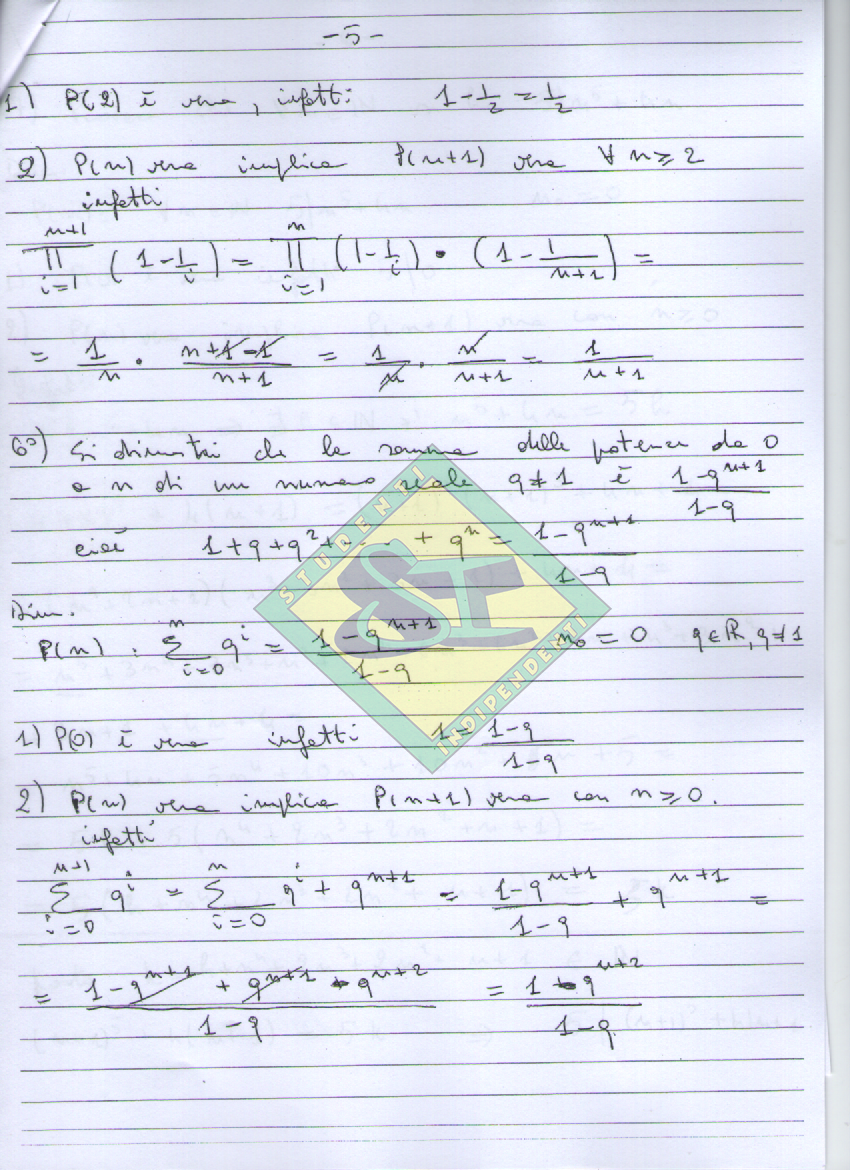 -5-
1) P(2) è vera, infatti: 1-1/2 = 1/2
2) P(n) vera implica P(n+1) vera ∀ n ≥ 2
infatti
∏_{i=1}^{n+1} (1-1/i) = ∏_{i=1}^{n} (1-1/i) • (1-1/(n+1)) =
= 1/n · (n+1-1)/(n+1) = 1/n · n/(n+1) = 1/(n+1)
6°) Si dimostri che la somma delle potenze da 0
a n di un numero reale q≠1 è (1-q^{n+1})/(1-q)
cioè 1+q+q²+---- + q^n = (1-q^{n+1})/(1-q)
Dim.
P(n) : ∑_{i=0}^{n} q^i = (1-q^{n+1})/(1-q) n₀ = 0 q∈ℝ, q≠1
1) P(0) è vera infatti 1 = (1-q)/(1-q)
2) P(n) vera implica P(n+1) vera con n ≥ 0.
infatti
∑_{i=0}^{n+1} q^i = ∑_{i=0}^{n} q^i + q^{n+1} = (1-q^{n+1})/(1-q) + q^{n+1} =
= (1-q^{n+1} + q^{n+1} - q^{n+2})/(1-q) = (1-q^{n+2})/(1-q)
STUDENTI
SI
INDIPENDENTI